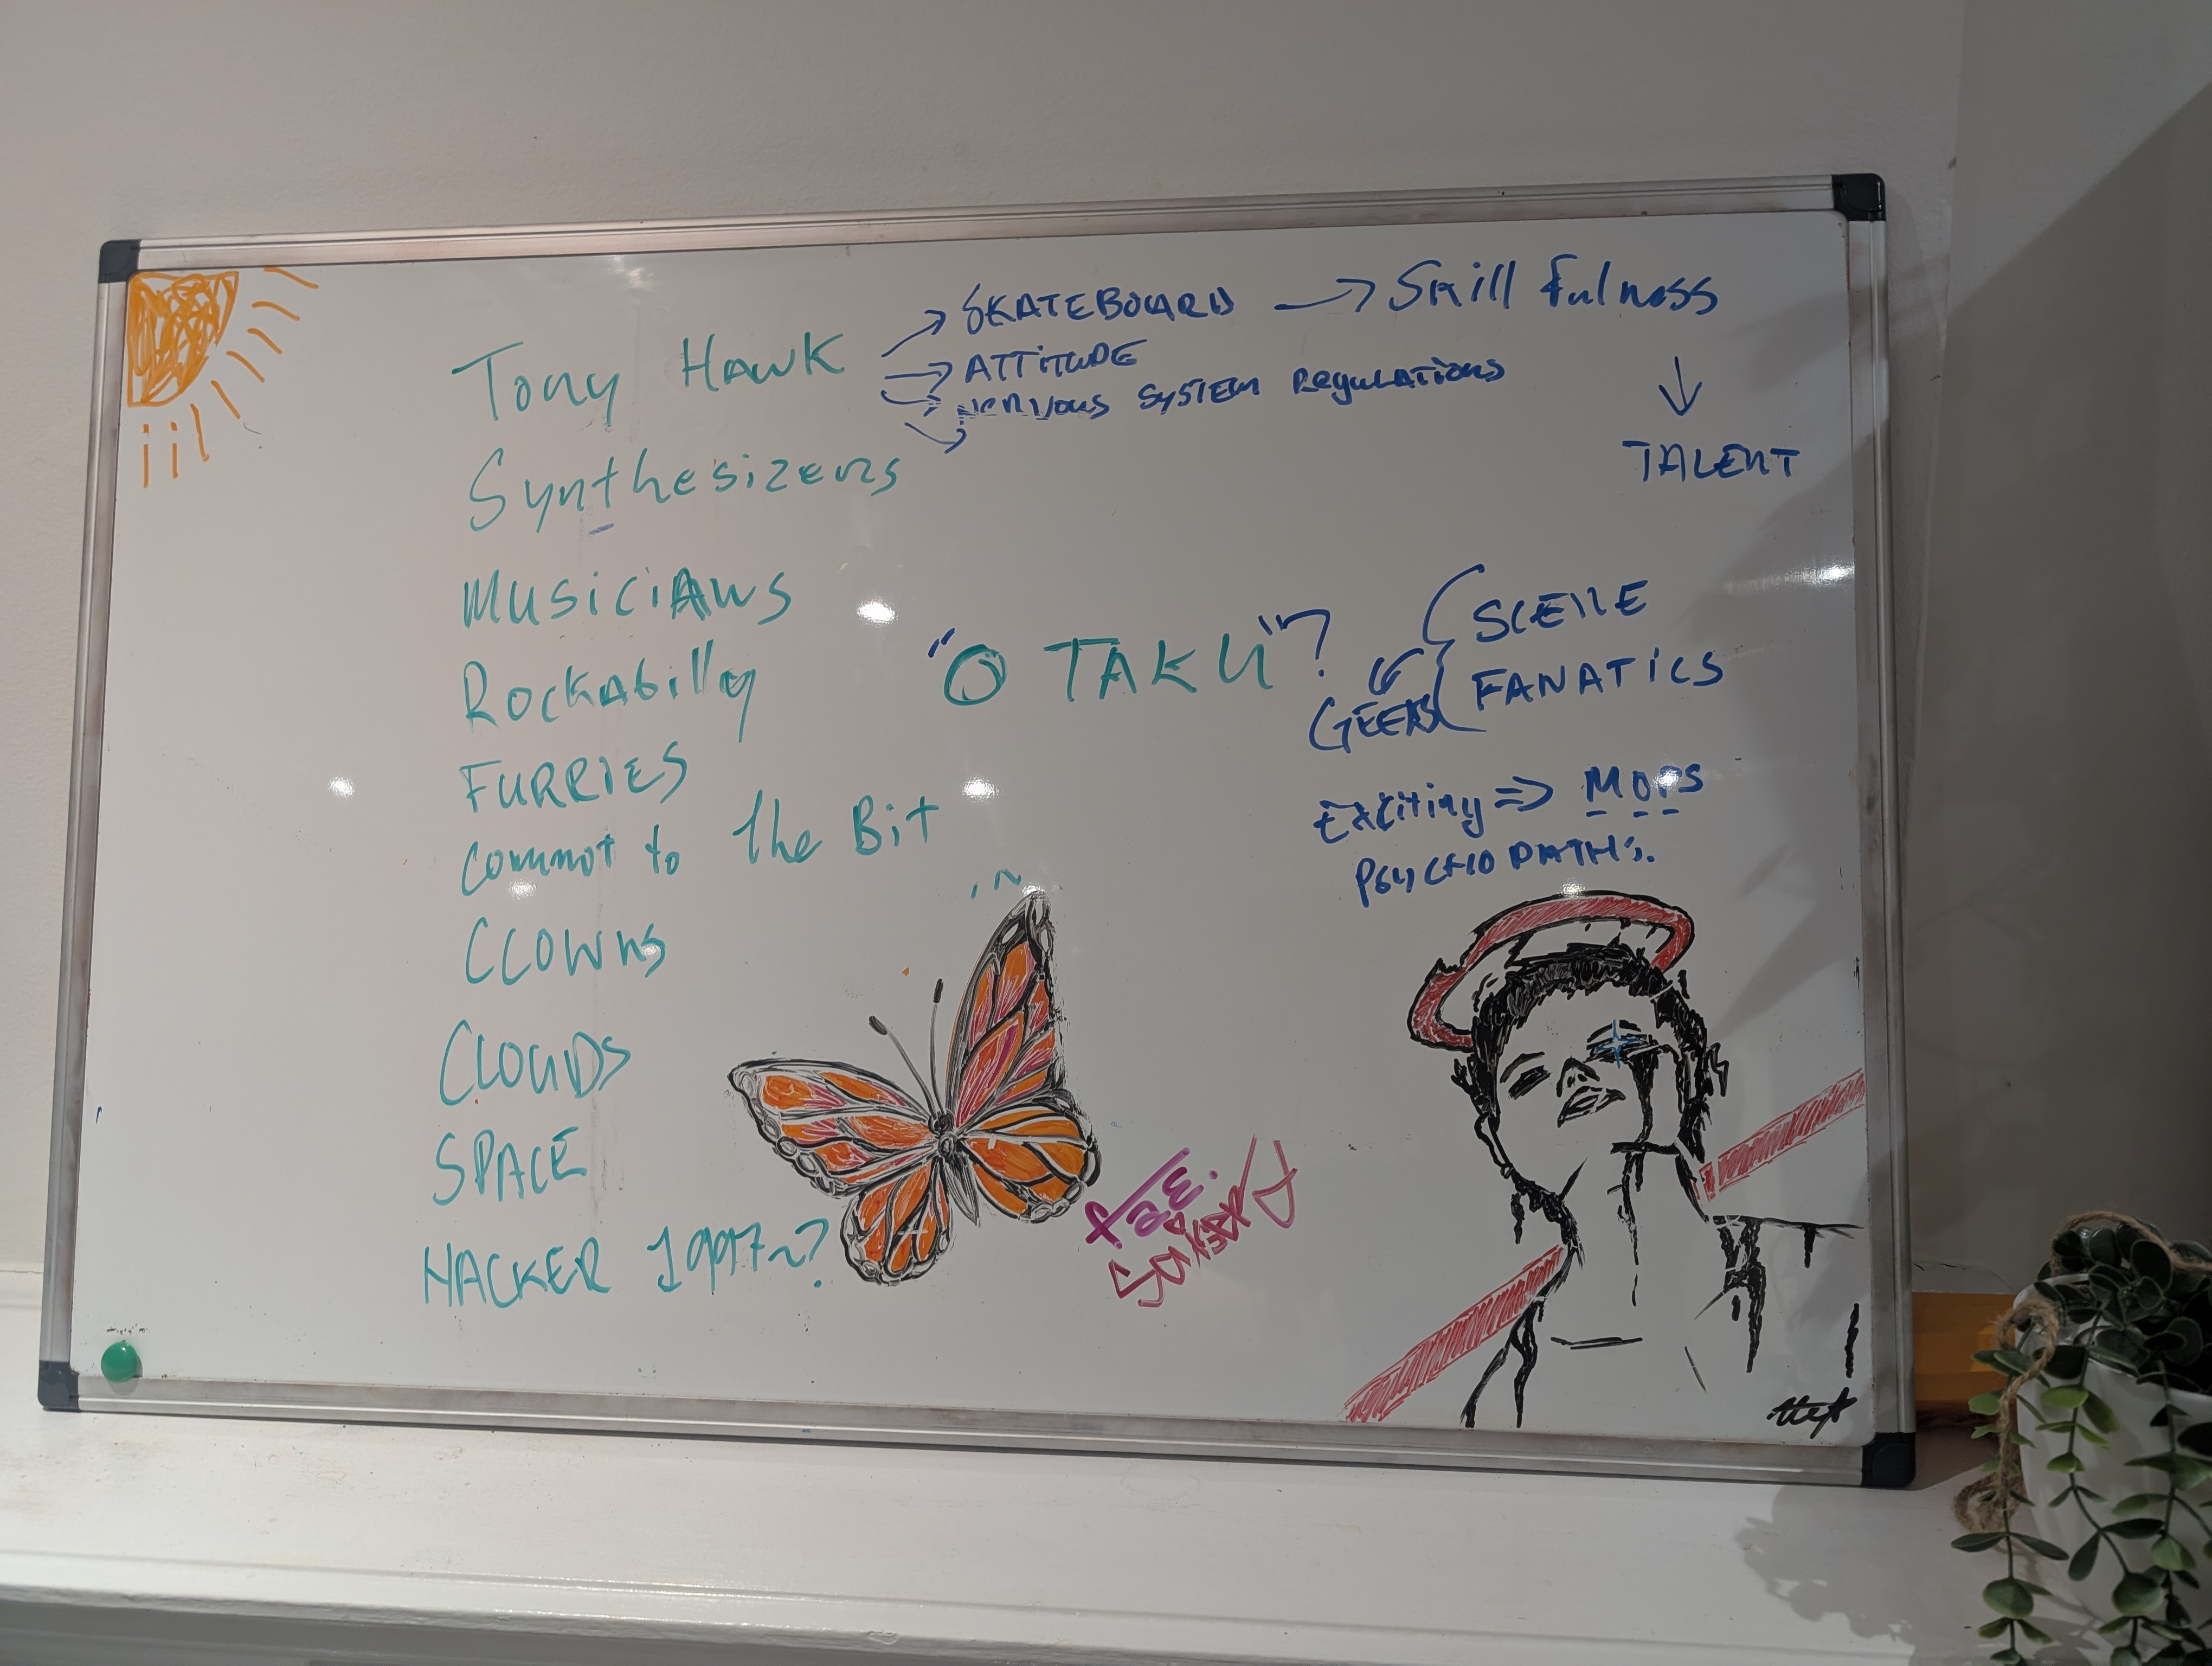 Tony Hawk → SKATEBOARD → Skill fulness
→ ATTITUDE
→ Nervous SYSTEM Regulations
↓
TALENT
Synthesizers
MUSICIANS
Rockabilly
FURRIES
Commit to the Bit
CLOWNS
CLOUDS
SPACE
HACKER 1997~?
"OTAKU"?
GEEKS
SCENE
FANATICS
Exciting => MOPS
PSYCHOPATHS.